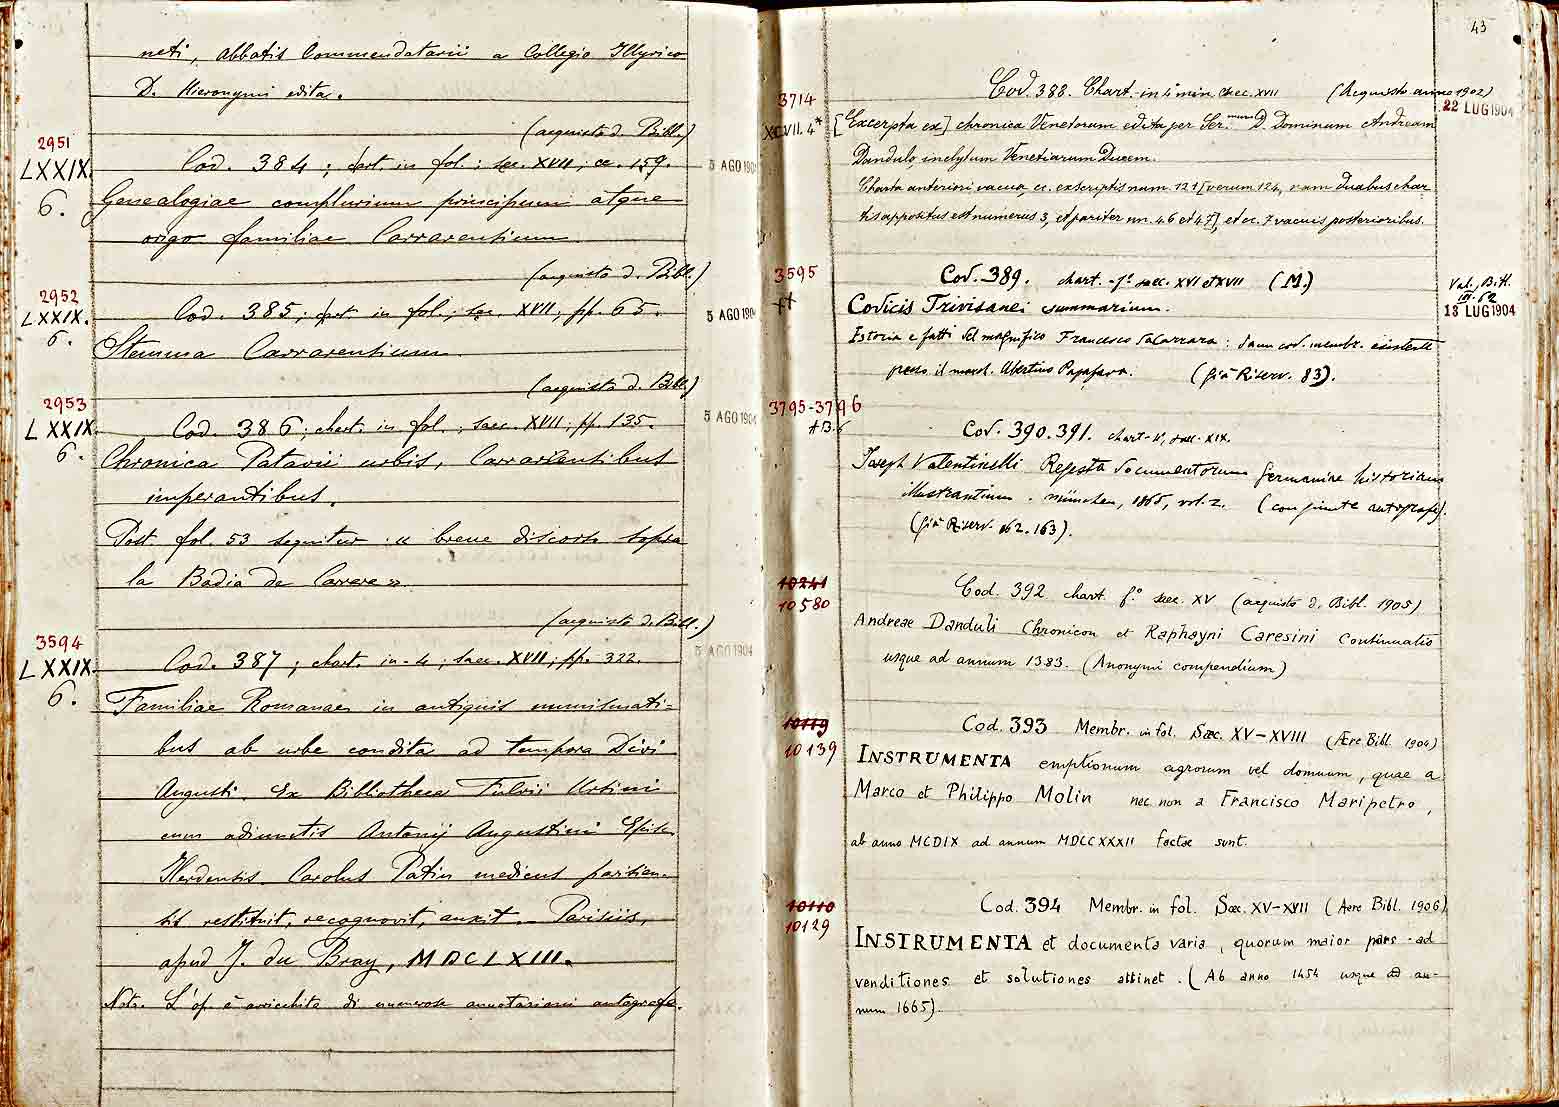 neti, abbatis Commendatarii a Collegio Illyrico
D. Hieronymi edita.
(acquisto d. Bibl.)
2951
LXXIX.
6.
Cod. 384; chart. in fol.; sec. XVII; cc. 159.
5 AGO 1904
Genealogiae complurium principum atque
origo familiae Carrarentium.
(acquisto d. Bibl.)
2952
LXXIX.
6.
Cod. 385; chart. in fol.; sec. XVII, pp. 65.
5 AGO 1904
Stemma Carrarentium.
(acquisto d. Bibl.)
2953
LXXIX.
6.
Cod. 386; chart. in fol.; saec. XVII; pp. 135.
5 AGO 1904
Chronica Patavii urbis, Carrarentibus
imperantibus.
Post. fol. 53 sequitur: « breve discorso sopra
la Badia de Carrere».
(acquisto d. Bibl.)
3594
LXXIX.
6.
Cod. 387; chart. in-4; saec. XVII; pp. 322.
5 AGO 1904
Familiae Romanae in antiquis numismati-
bus ab urbe condita ad tempora Divi
Augusti. Ex Bibliotheca Fulvii Ursini
cum adiunctis Antonij Augustini Episc.
Ilerdensis. Carolus Patin medicus parisien-
sis restituit, recognovit, auxit. Parisiis,
apud J. du Bray, MDCLXIII.
Nota. L'op. è arricchita di numerose annotazioni autografe.
43
3714
XCVII. 4*
Cod. 388. Chart. in 4° min. saec. XVII (Acquisto anno 1902)
22 LUG 1904
[Excerpta ex] chronica Venetorum edita per Ser.mum D. Dominum Andream
Dandulo inclytum Venetiarum Ducem.
Charta anteriori vacua, cc. exscriptis num. 121 [verum 124, nam duabus char
tis appositus est numerus 3, et pariter nn. 46 et 47], et cc. 7 vacuis posterioribus.
3595
Cod. 389. chart. f.° saec. XVI et XVII (M.)
13 LUG 1904
Codicis Trivisanei summarium.
Istoria e fatti del magnifico Francesco da Carrara: da un cod. membr. esistente
presso il march. Ubertino Papafava. (già Riserv. 83).
3795-3796
Cod. 390.391. chart. 4°, saec. XIX.
Joseph Valentinelli Regesta documentorum Germaniae historiam
illustrantium. München, 1865, vol. 2. (con giunte autografe).
(già Riserv. 162.163).
10241
10580
Cod. 392 chart. f.° saec. XV (acquisto d. Bibl. 1905)
Andreae Danduli Chronicon et Raphayni Caresini continuatio
usque ad annum 1383. (Anonymi compendium)
10119
10139
Cod. 393 Membr. in fol. Sæc. XV-XVIII (Ære Bibl. 1904)
INSTRUMENTA emptionum agrorum vel domuum, quae a
Marco et Philippo Molin nec non a Francisco Maripetro,
ab anno MCDIX ad annum MDCCXXXII factae sunt.
10110
10129
Cod. 394 Membr. in fol. Sæc. XV-XVII (Aere Bibl. 1906)
INSTRUMENTA et documenta varia, quorum maior pars ad
venditiones et solutiones attinet. (Ab anno 1454 usque ad an-
num 1665).